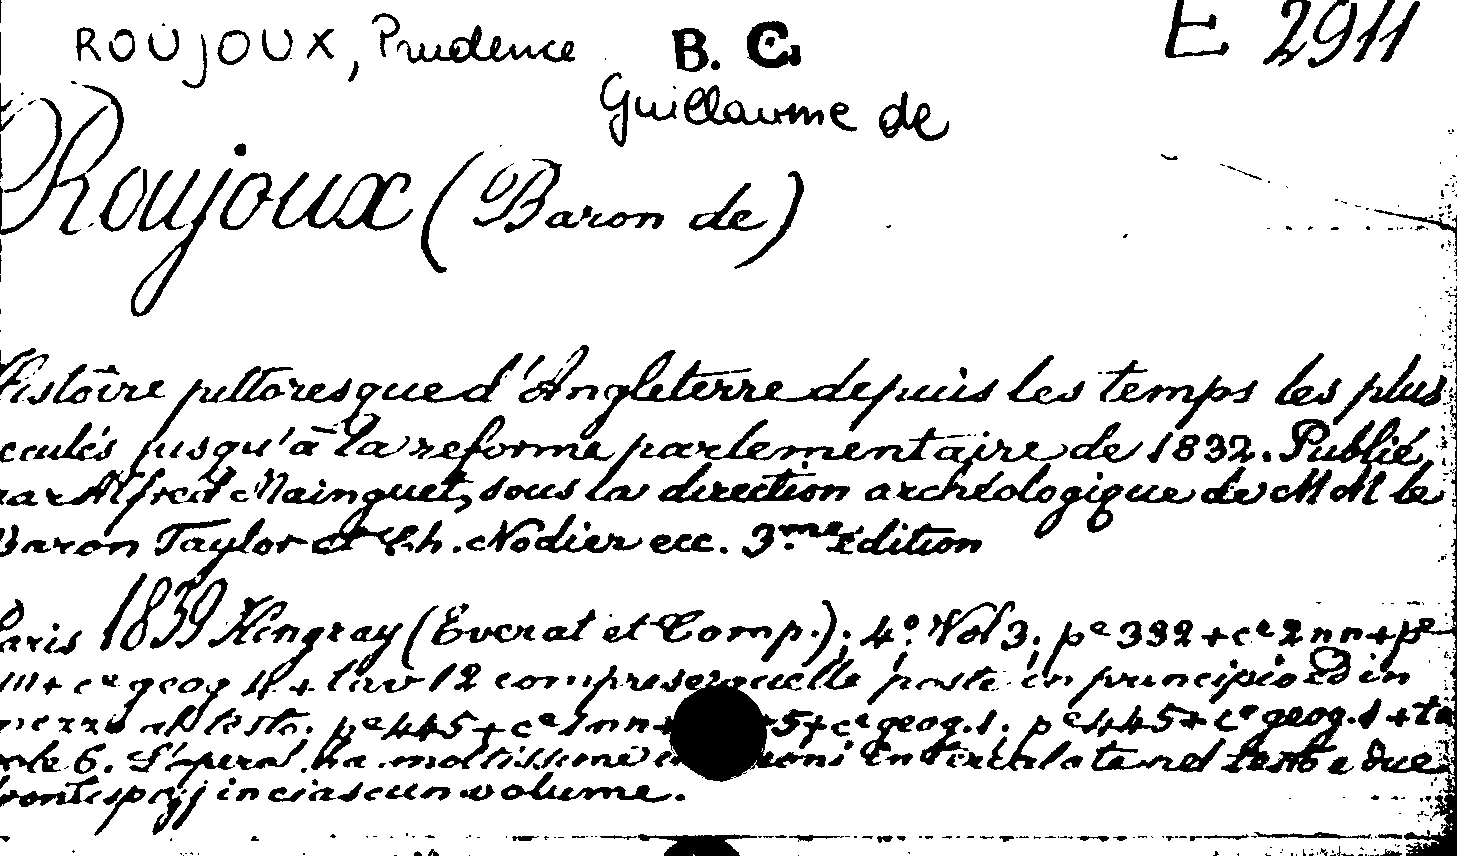 ROUJOUX, Prudence B. C. E 2911
Guillaume de
Roujoux (Baron de)
Histoire pittoresque d'Angleterre depuis les temps les plus
eculés jusqu'à la reforme parlementaire de 1832. Publié
par Alfred Mainguet, sous la direction archéologique de MM le
Baron Taylor et Ch. Nodier ecc. 3.me édition
Paris 1839 Hingray (Everat et Comp.); 4º. Vol 3. pe 392 + ce 2 nn + pe
+ ce geog 11. + tav 12 comprese quelle poste in principio ed in
mezzo al testo. pe 445 + ce 1 nn + 5 + ce geog. 1. pe 445 + ce geog. 1 + ta
vole 6. L'opera ha moltissime intercalate nel testo e due
frontespizj in ciascun volume.